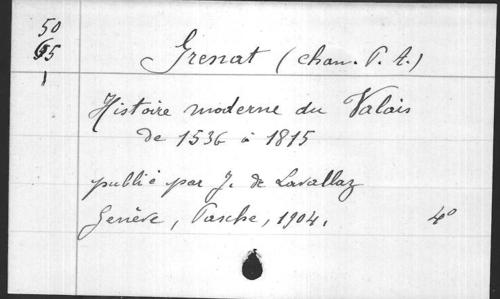 50
65
1
Grenat (chan. P. A.)
Histoire moderne du Valais
de 1536 à 1815
publié par J. de Lavallaz
Genève, Pasche, 1904. 4°